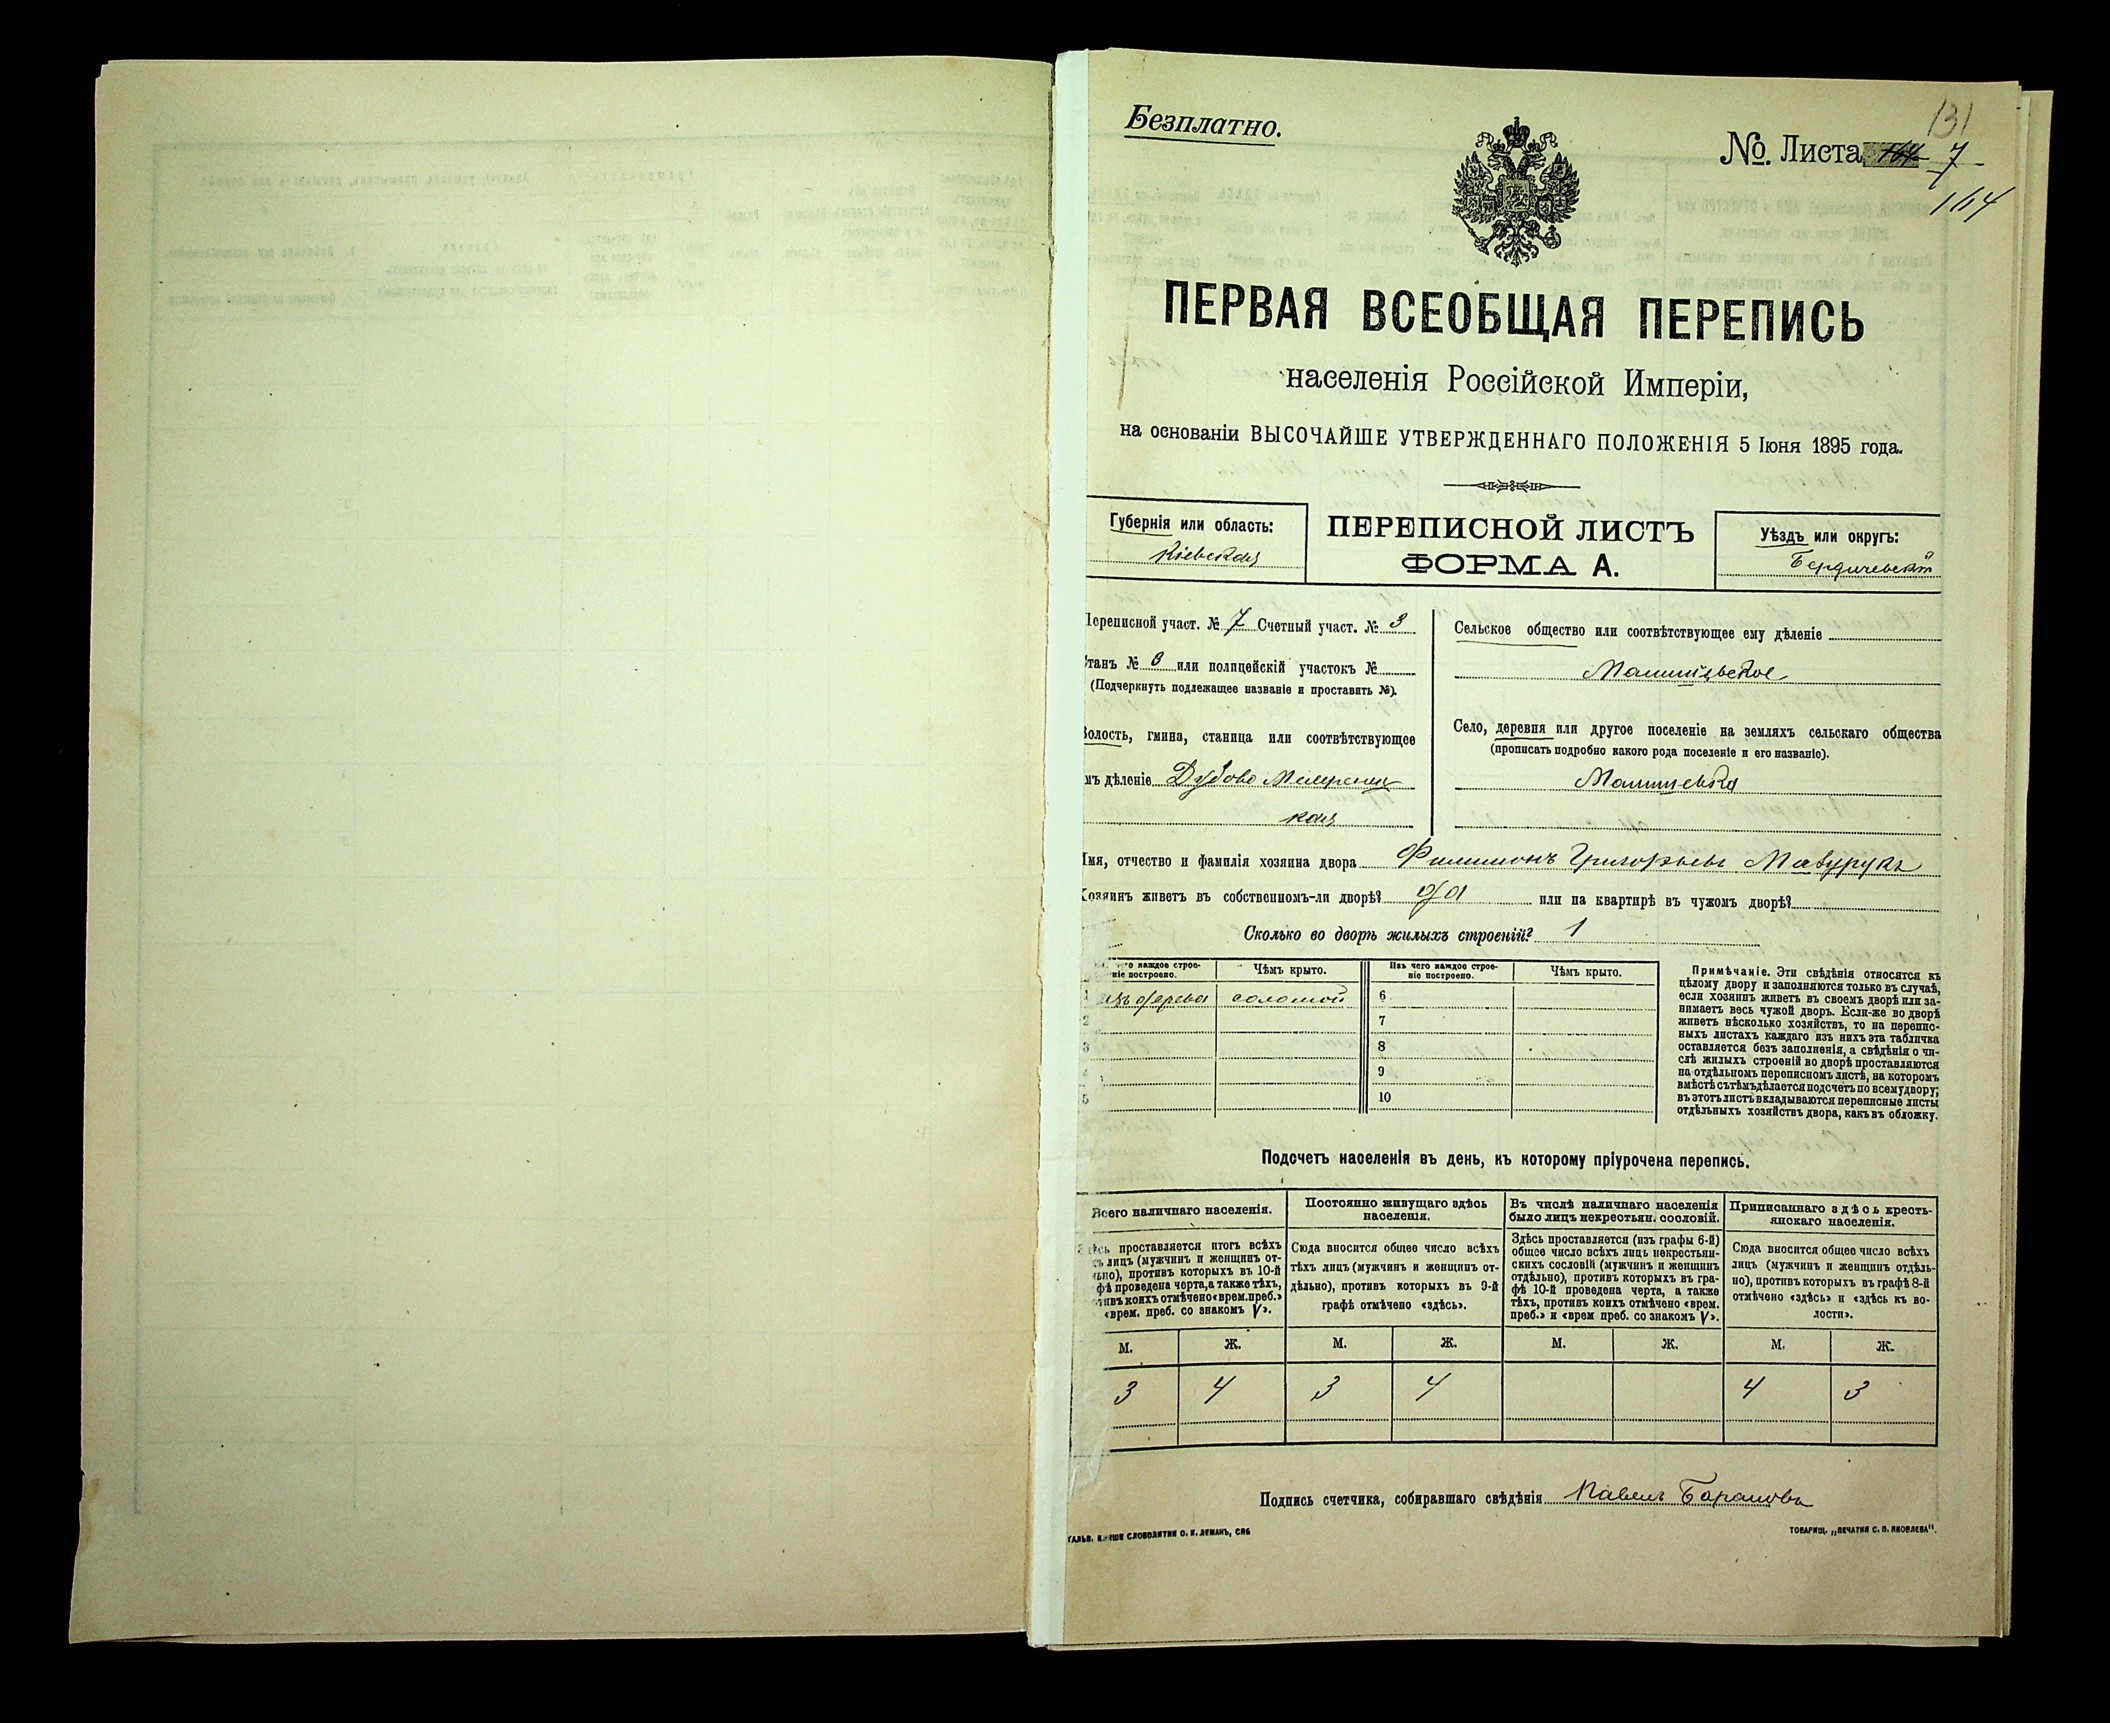 Безплатно.
131
№. Листа 7
164
ПЕРВАЯ ВСЕОБЩАЯ ПЕРЕПИСЬ
населенія Россійской Имперіи,
на основаніи ВЫСОЧАЙШЕ УТВЕРЖДЕННАГО ПОЛОЖЕНІЯ 5 Іюня 1895 года.
Губернія или область:
Кіевская
ПЕРЕПИСНОЙ ЛИСТЪ
ФОРМА А.
Уѣздъ или округъ:
Бердичевскій
Переписной участ. № 7 Счетный участ. № 3
Станъ № 3 или полицейскій участокъ №
(Подчеркнуть подлежащее названіе и проставить №).
Волость, гмина, станица или соотвѣтствующее
имъ дѣленіе Дубово Махаринец
кая
Сельское общество или соотвѣтствующее ему дѣленіе
Село, деревня или другое поселеніе на земляхъ сельскаго общества
(прописать подробно какого рода поселеніе и его названіе).
Имя, отчество и фамилія хозяина двора Филимонъ Григорьевъ Мазурукъ
Хозяинъ живетъ въ собственномъ-ли дворѣ? да или на квартирѣ въ чужомъ дворѣ?
Сколько во дворѣ жилыхъ строеній? 1
чего каждое строе-
ніе построено.
Чѣмъ крыто.
Изъ чего каждое строе-
ніе построено.
Чѣмъ крыто.
1 изъ дерева соломой 6
2 7
3 8
4 9
5 10
Примѣчаніе. Эти свѣдѣнія относятся къ
цѣлому двору и заполняются только въ случаѣ,
если хозяинъ живетъ въ своемъ дворѣ или за-
нимаетъ весь чужой дворъ. Если-же во дворѣ
живетъ нѣсколько хозяйствъ, то на перепис-
ныхъ листахъ каждаго изъ нихъ эта табличка
оставляется безъ заполненія, а свѣдѣнія о чи-
слѣ жилыхъ строеній во дворѣ проставляются
на отдѣльномъ переписномъ листѣ, на которомъ
вмѣстѣ съ тѣмъ дѣлается подсчетъ по всему двору;
въ этотъ листъ вкладываются переписные листы
отдѣльныхъ хозяйствъ двора, какъ въ обложку.
Подсчетъ населенія въ день, къ которому пріурочена перепись.
Всего наличнаго населенія.
Здѣсь проставляется итогъ всѣхъ
лицъ (мужчинъ и женщинъ от-
дѣльно), противъ которыхъ въ 10-й
графѣ проведена черта, а также тѣхъ,
противъ коихъ отмѣчено «врем. преб.»
«врем. преб. со знакомъ V».
Постоянно живущаго здѣсь
населенія.
Сюда вносится общее число всѣхъ
тѣхъ лицъ (мужчинъ и женщинъ от-
дѣльно), противъ которыхъ въ 9-й
графѣ отмѣчено «здѣсь».
Въ числѣ наличнаго населенія
было лицъ некрестьян. сословій.
Здѣсь проставляется (изъ графы 6-й)
общее число всѣхъ лицъ некрестьян-
скихъ сословій (мужчинъ и женщинъ
отдѣльно), противъ которыхъ въ гра-
фѣ 10-й проведена черта, а также
тѣхъ, противъ коихъ отмѣчено «врем.
преб.» и «врем преб. со знакомъ V».
Приписаннаго здѣсь кресть-
янскаго населенія.
Сюда вносится общее число всѣхъ
лицъ (мужчинъ и женщинъ отдѣль-
но), противъ которыхъ въ графѣ 8-й
отмѣчено «здѣсь» и «здѣсь къ во-
лости».
М. Ж. М. Ж. М. Ж. М. Ж.
3 4 3 4 4 3
Подпись счетчика, собиравшаго свѣдѣнія Павелъ Барановъ
ГАЛЬВ. КЛИШЕ СЛОВОЛИТНИ О. И. ЛЕМАНЪ, СПБ
ТОВАРИЩ. „ПЕЧАТНЯ С. П. ЯКОВЛЕВА“.